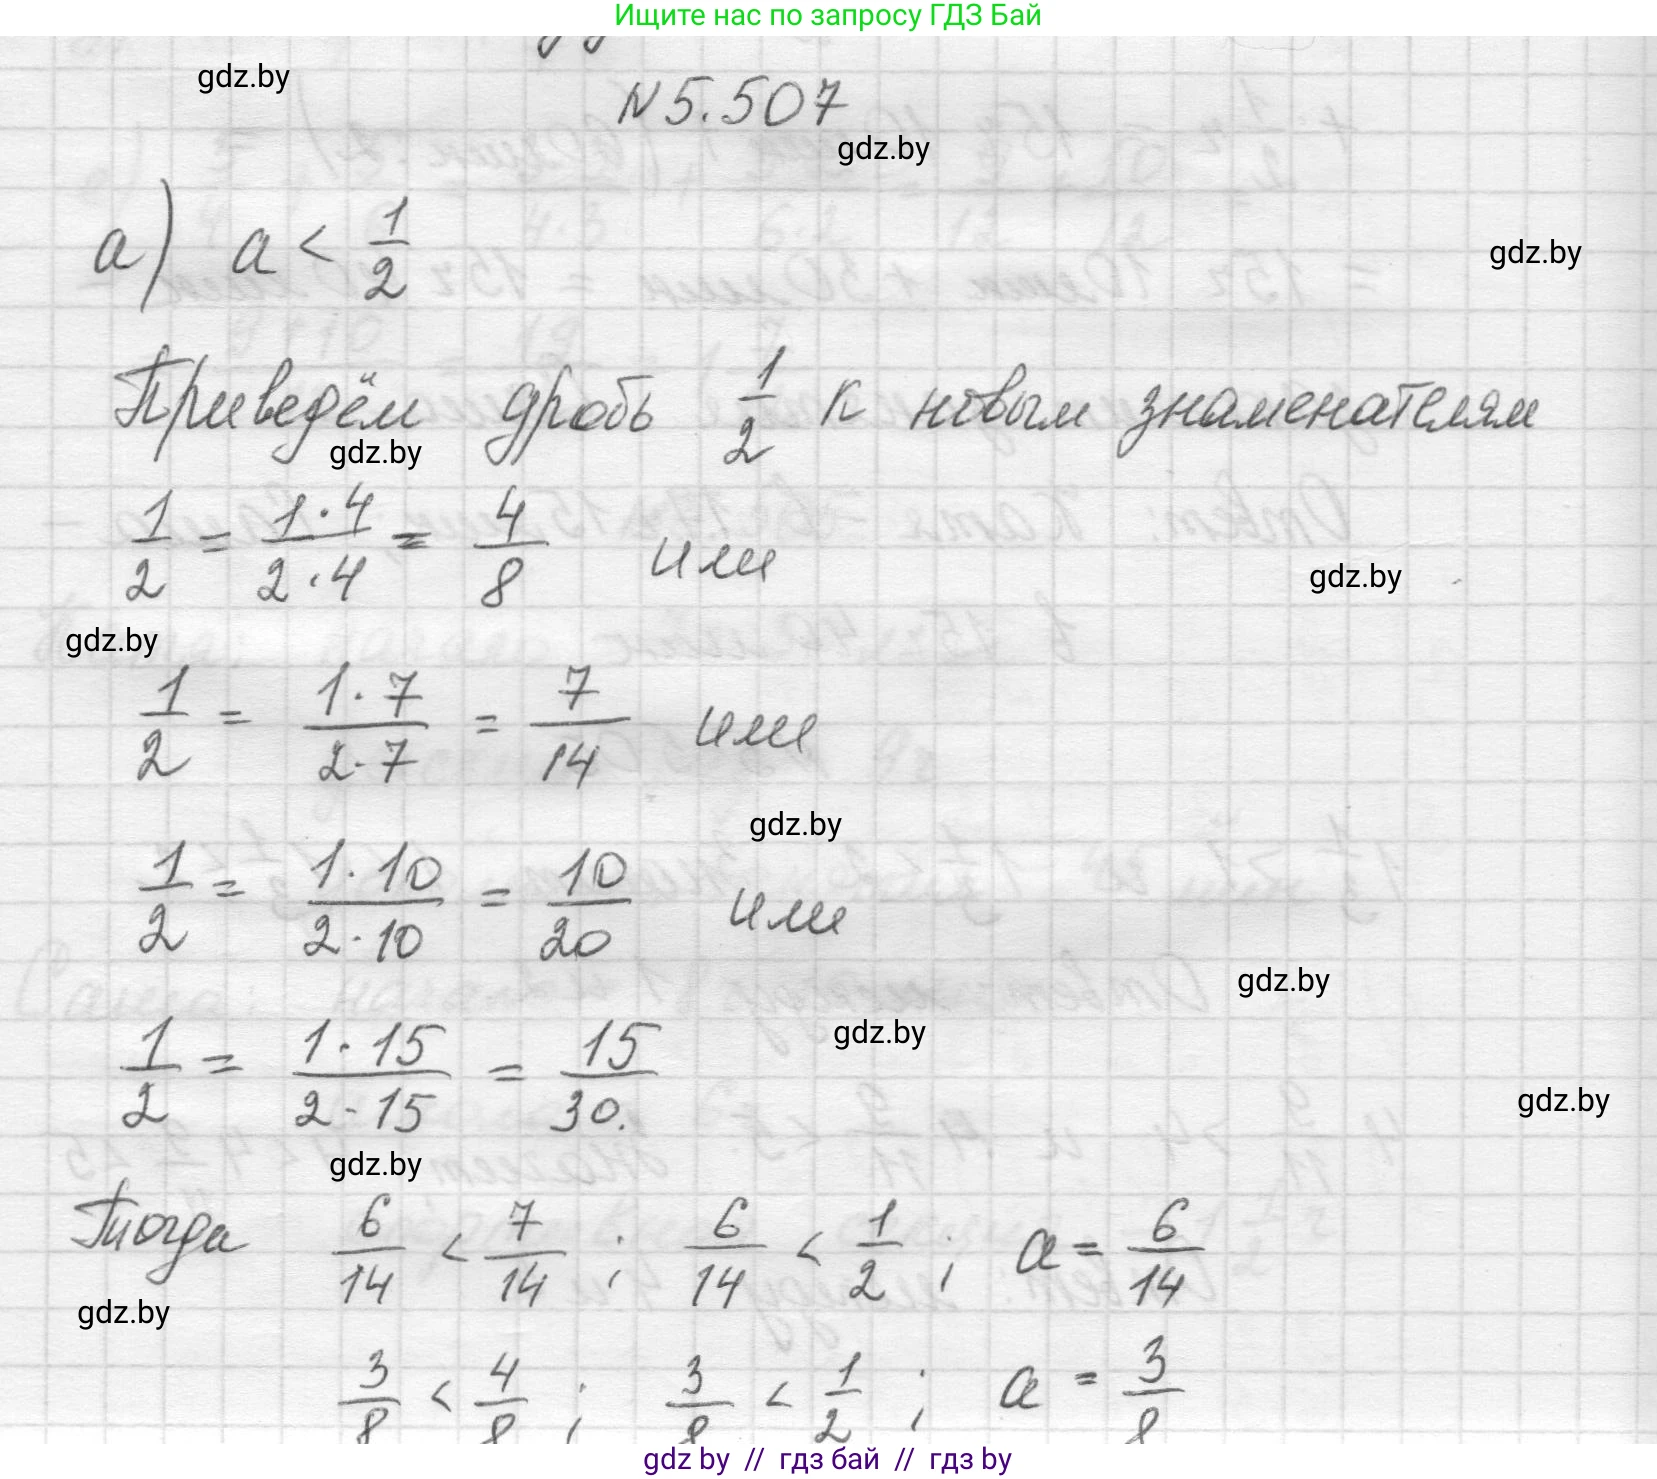 Ищите нас по запросу ГДЗ Бай
gdz.by
N 5.507
gdz.by
а) a < 1/2
gdz.by
Приведём дробь 1/2 к новым знаменателям
gdz.by
1/2 = 1·4/2·4 = 4/8 или
gdz.by
gdz.by
1/2 = 1·7/2·7 = 7/14 или
gdz.by
1/2 = 1·10/2·10 = 10/20 или
gdz.by
gdz.by
1/2 = 1·15/2·15 = 15/30.
gdz.by
gdz.by
Тогда 6/14 < 7/14 ; 6/14 < 1/2 ; a = 6/14
gdz.by
3/8 < 4/8 ; 3/8 < 1/2 ; a = 3/8
gdz by // гдз бай // гдз by